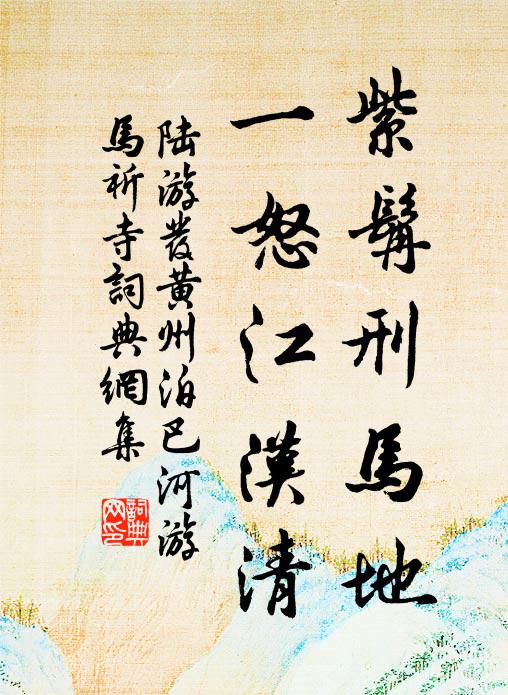 紫髯刑馬地
一怒江漢清
陸游發黃州泊巴河游
馬祈寺詞典網集
詞典网印